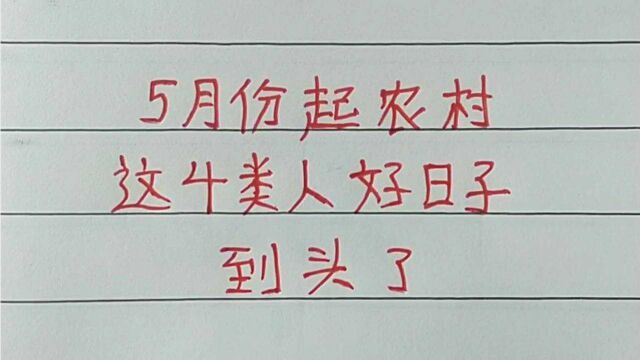 5月份起农村
这4类人好日子
到头了